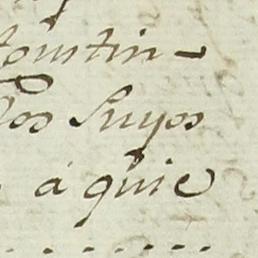 Agustin
los Suyos
á quie